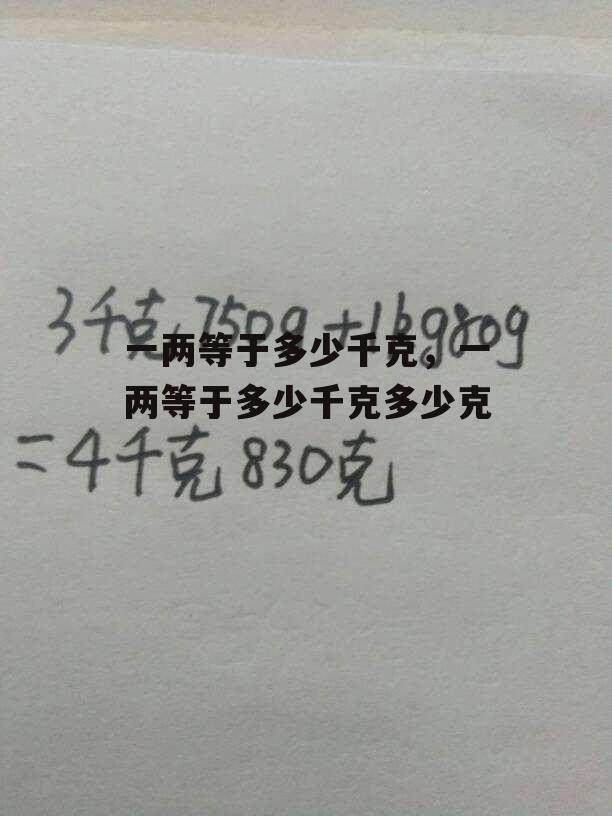 3千克750g+1kg80g
一两等于多少千克，一
两等于多少千克多少克
=4千克830克